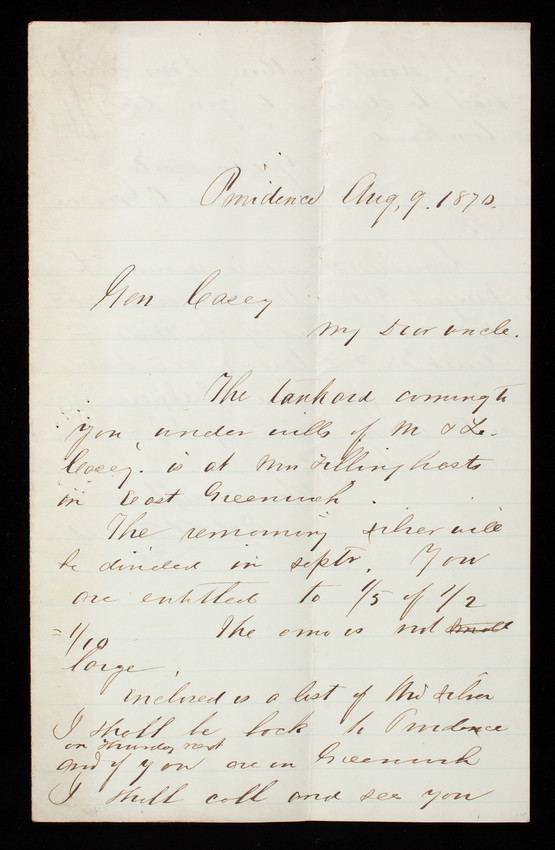 Providence Aug, 9. 1870.
Gen Casey
My Dear uncle.
The tankard coming to
you under wills of M & L.
Casey. is at Mrs Tillinghasts
in East Greenwich.
The remaining silver will
be divided in septr. You
are entitled to 1/5 of 1/2
= 1/10 The amo is not small
large.
inclosed is a list of this silver
I shall be back to Providence
on thursday next
and if you are in Greenwich
I shall call and see you